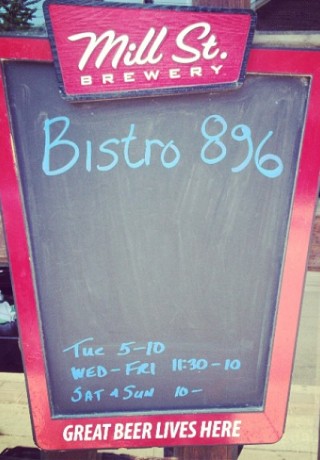 Mill St.
BREWERY
Bistro 896
Tue 5-10
WED-FRI 11:30-10
SAT & SUN 10-
GREAT BEER LIVES HERE